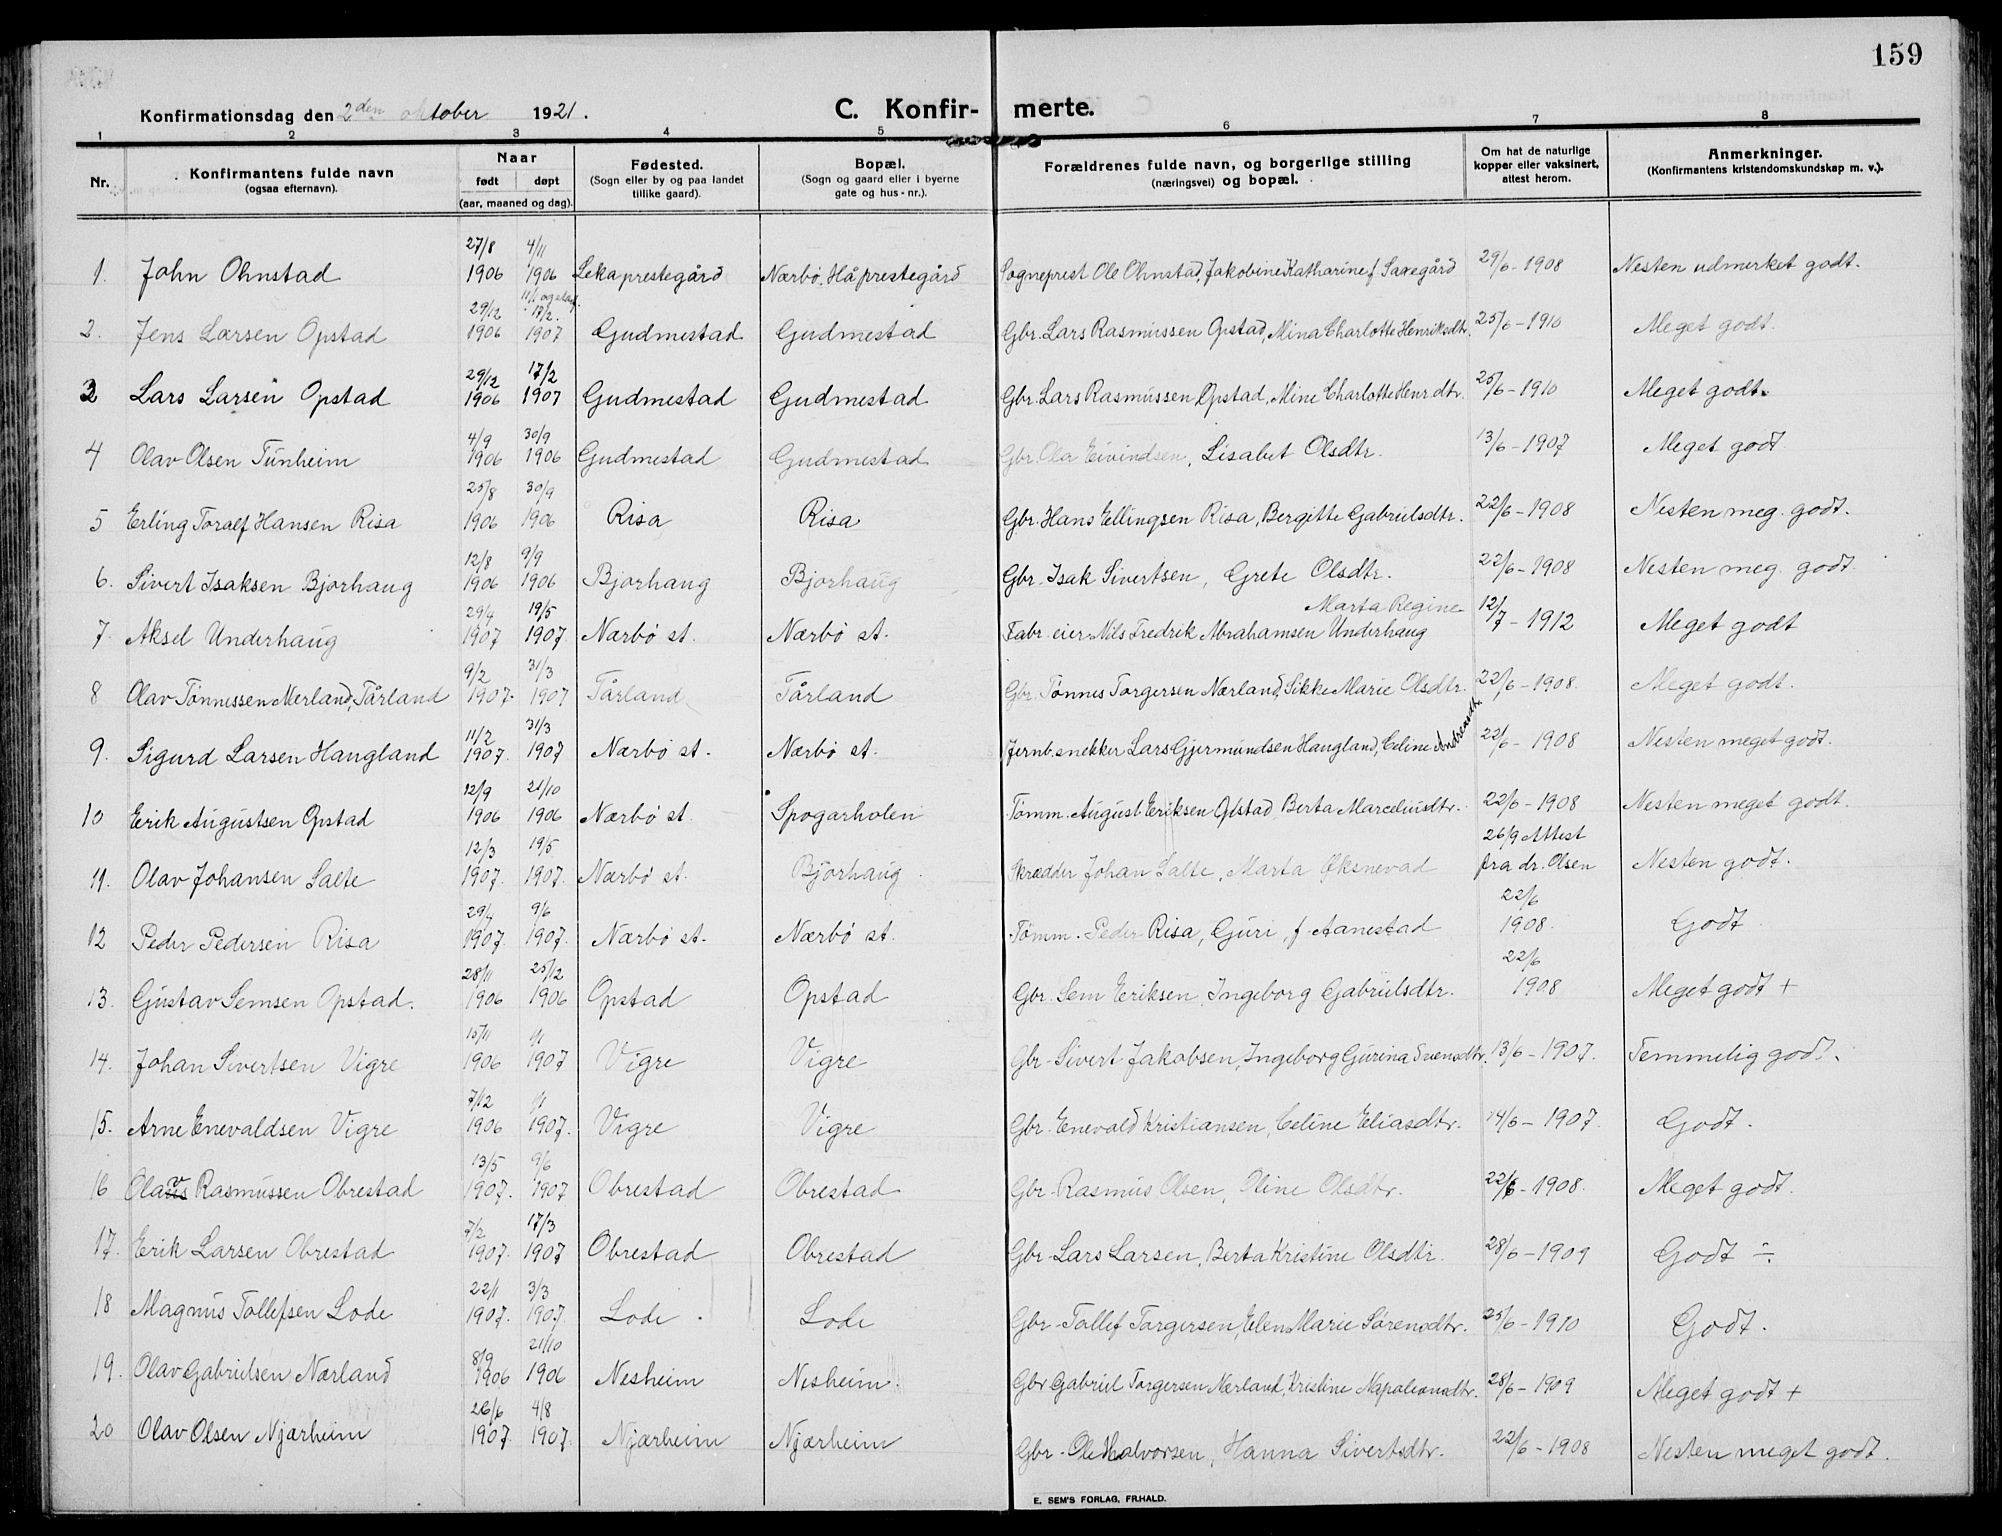 159
Konfirmationsdag den 2den oktober 1921.
C. Konfir- merte.
1 2 3 4 5 6 7 8
Nr. Konfirmantens fulde navn (ogsaa efternavn). Naar født døpt (aar, maaned og dag). Fødested. (Sogn eller by og paa landet tillike gaard). Bopæl. (Sogn og gaard eller i byerne gate og hus-nr.). Forældrenes fulde navn, og borgerlige stilling (næringsvei) og bopæl. Om hat de naturlige kopper eller vaksinert, attest herom. Anmerkninger. (Konfirmantens kristendomskundskap m. v.).
1. John Ohnstad 27/8 1906 4/11 1906 Leka prestegård Nærbø. Hå prestegård Sogneprest Ole Ohnstad, Jakobine Katharine f. Saxegård 29/6-1908 Nesten udmerket godt.
2. Jens Larsen Opstad 29/12 1906 17/2. 1907 Gudmestad Gudmestad Gbr. Lars Rasmussen Opstad, Mina Charlotte Henriksdtr. 25/6-1910 Meget godt.
3 Lars Larsen Opstad 29/12 1906 17/2 1907 Gudmestad Gudmestad Gbr. Lars Rasmussen Opstad, Mine Charlotte Henr.dtr. 25/6-1910 Meget godt.
4 Olav Olsen Tunheim 4/9 1906 30/9 1906 Gudmestad Gudmestad Gbr. Ola Eivindsen, Lisabet Olsdtr. 13/6-1907 Meget godt
5 Erling Toralf Hansen Risa 25/8 1906 30/9 1906 Risa Risa Gbr. Hans Ellingsen Risa, Bergitte Gabrielsdtr. 22/6-1908 Nesten meg. godt.
6. Sivert Isaksen Bjorhaug 12/8 1906 9/9 1906 Bjorhaug Bjorhaug Gbr. Isak Sivertsen, Grete Olsdtr. 22/6-1908 Nesten meg. godt.
7. Aksel Underhaug 29/4 1907 19/5 1907. Nærbø st. Nærbø st. Fabr. eier Nils Fredrik Abrahamsen Underhaug Marta Regine 12/7-1912 Meget godt
8 Olav Tønnessen Nerland, Tårland 9/2 1907. 31/3 1907 Tårland Tårland Gbr. Tønnes Torgersen Nærland, Sikke Marie Olsdtr. 22/6-1908. Meget godt.
9. Sigurd Larsen Haugland 11/2 1907. 31/3 1907 Nærbø st. Nærbø st. Jernb. snekker Lars Gjermundsen Haugland, Celine Andreasdtr. 22/6-1908 Nesten meget godt.
10 Erik Augustsen Opstad 12/9 1906 21/10 1906 Nærbø st. Spogarholen Tømm. August Eriksen Opstad Berta Marceliusdtr. 22/6-1908 Nesten meget godt.
11. Olav Johansen Salte 12/3 1907. 19/5 1907. Nærbø st. Bjorhaug Skrædder Johan Salte, Marta Øksnevad 26/9 Attest fra dr. Olsen Nesten godt.
12 Peder Pedersen Risa 29/4 1907. 9/6 1907. Nærbø st. Nærbø st. Tømm. Peder Risa, Guri, f. Aanestad 22/6 1908. Godt
13. Gustav Semsen Opstad. 28/11 1906 25/12 1906 Opstad Opstad Gbr. Sem Eriksen, Ingeborg Gabrielsdtr. 22/6 1908 Meget godt +
14. Johan Sivertsen Vigre 15/11 1906 1/1 1907 Vigre Vigre Gbr. Sivert Jakobsen, Ingeborg Gurina Svensdtr. 13/6-1907. Temmelig godt.
15. Arne Enevaldsen Vigre 7/12 1906 1/1 1907. Vigre Vigre Gbr. Enevald Kristiansen, Celine Eliasdtr. 14/6-1907. Godt.
16 Olav Rasmussen Obrestad 13/5 1907. 9/6 1907 Obrestad Obrestad Gbr. Rasmus Olsen, Oline Olsdtr. 22/6-1908. Meget godt.
17. Erik Larsen Obrestad 7/2 1907. 17/3 1907 Obrestad Obrestad Gbr. Lars Larsen, Berta Kristine Olsdtr. 28/6-1909 Godt ÷.
18 Magnus Tollefsen Lode 22/1 1907. 3/3 1907. Lode Lode Gbr. Tollef Torgersen, Elen Marie Sørensdtr. 25/6-1910 Godt.
19. Olav Gabrielsen Nærland 8/9 1906 21/10 1906 Nesheim Nesheim Gbr. Gabriel Torgersen Nærland, Kristine Napoleonsdtr. 28/6-1909 Meget godt +
20 Olav Olsen Njærheim 26/6 1907. 4/8 1907. Njærheim Njærheim Gbr. Ole Halvorsen, Hanna Sivertsdtr. 22/6-1908 Nesten meget godt.
E. SEM'S FORLAG, FR.HALD.